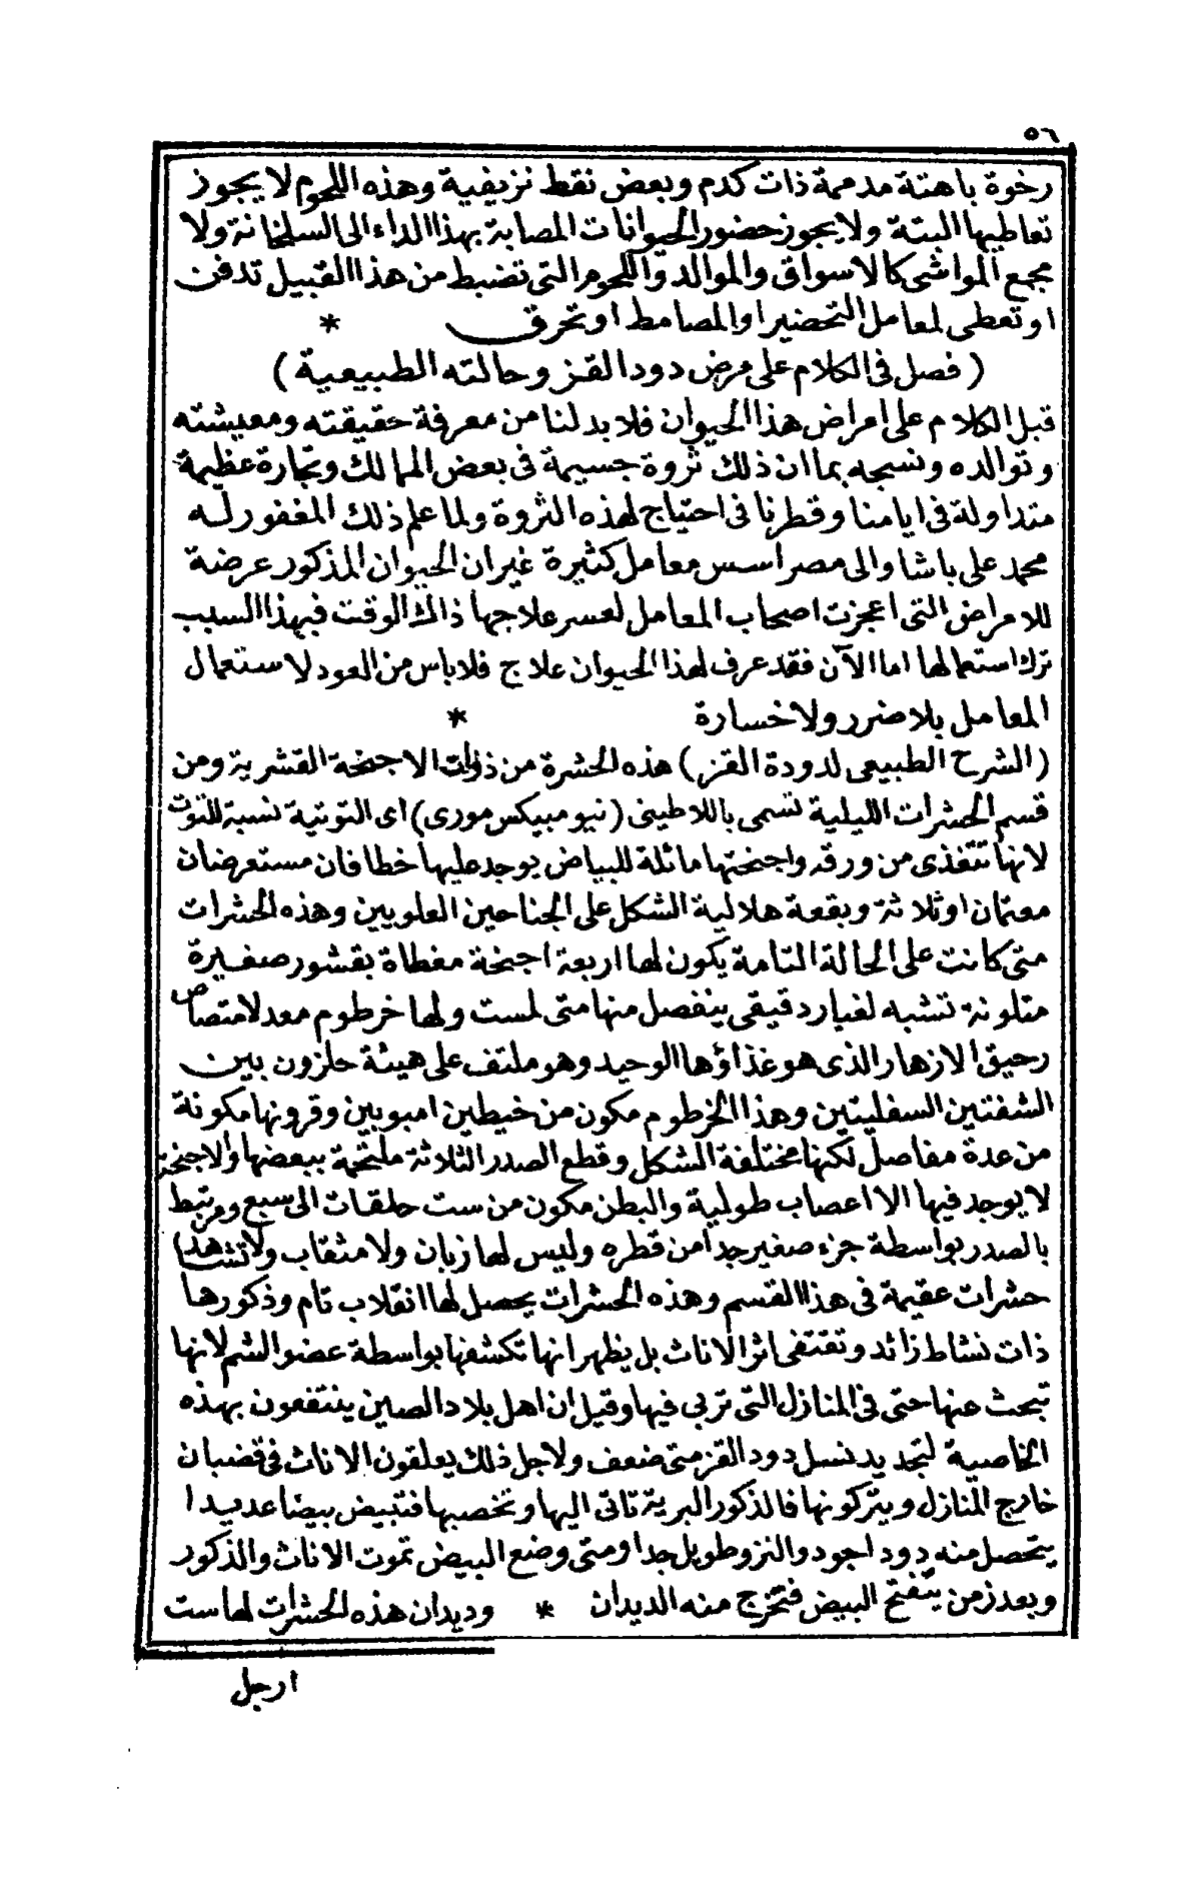 ٥٦
رخوة باهتة مدممة ذات كدم وبعض نقط نزيفية وهذه اللحوم لا يجوز
تعاطيها البتة ولا يجوز حضور الحيوانات المصابة بهذا الداء الى السلخانة ولا
مجمع المواشى كالاسواق والموالد واللحوم التى تضبط من هذا القبيل تدفن
او تعطى لمعامل التحضير او المصامط او تحرق *
(فصل فى الكلام على مرض دود القز وحالته الطبيعية)
قبل الكلام على امراض هذا الحيوان فلا بد لنا من معرفة حقيقته ومعيشته
وتوالده ونسجه بما ان ذلك ثروة جسيمة فى بعض الممالك وتجارة عظيمة
متداولة فى ايامنا وقطرنا فى احتياج لهذه الثروة ولما علم ذلك المغفور له
محمد على باشا والى مصر اسس معامل كثيرة غير ان الحيوان المذكور عرضة
للامراض التى اعجزت اصحاب المعامل لعسر علاجها ذاك الوقت فبهذا السبب
ترك استعمالها اما الآن فقد عرف لهذا الحيوان علاج فلا باس من العود لاستعمال
المعامل بلا ضرر ولا خسارة *
(الشرح الطبيعى لدودة القز) هذه الحشرة من ذوات الاجنحة القشرية ومن
قسم الحشرات الليلية تسمى باللاطينى (نيو مبيكس مورى) اى التوتية نسبة للتوت
لانها تتغذى من ورقه واجنحتها مائلة للبياض يوجد عليها خطافان مستعرضان
معتمان او ثلاثة وبقعة هلالية الشكل على الجناحين العلويين وهذه الحشرات
متى كانت على الحالة التامة يكون لها اربعة اجنحة مغطاة بقشور صغيرة
متلونة تشبه لغبار دقيقى ينفصل منها متى لمست ولها خرطوم معد لامتصاص
رحيق الازهار الذى هو غذاؤها الوحيد وهو ملتف على هيئة حلزون بين
الشفتين السفليتين وهذا الخرطوم مكون من خيطين امبوبيين وقرونها مكونة
من عدة مفاصل لكنها مختلفة الشكل وقطع الصدر الثلاثة ملتحمة ببعضها والاجنحة
لا يوجد فيها الا اعصاب طولية والبطن مكون من ست حلقات الى سبع ومرتبط
بالصدر بواسطة جزء صغير جدا من قطره وليس لها زبان ولا مثقاب ولا تشاهد
حشرات عقيمة فى هذا القسم وهذه الحشرات يحصل لها انقلاب تام وذكورها
ذات نشاط زائد وتقتفى اثر الاناث بل يظهر انها تكشفها بواسطة عضو الشم لانها
تبحث عنها حتى فى المنازل التى تربى فيها وقيل ان اهل بلاد الصين ينتفعون بهذه
الخاصية لتجديد نسل دود القز متى ضعف ولاجل ذلك يعلقون الاناث فى قضبان
خارج المنازل ويتركونها فالذكور البرية تاتى اليها وتخصبها فتبيض بيضا عديدا
يتحصل منه دود اجود والنز وطويل جدا ومتى وضع البيض تموت الاناث والذكور
وبعد زمن يتفتح البيض فتخرج منه الديدان * وديدان هذه الحشرات لها ست
ارجل